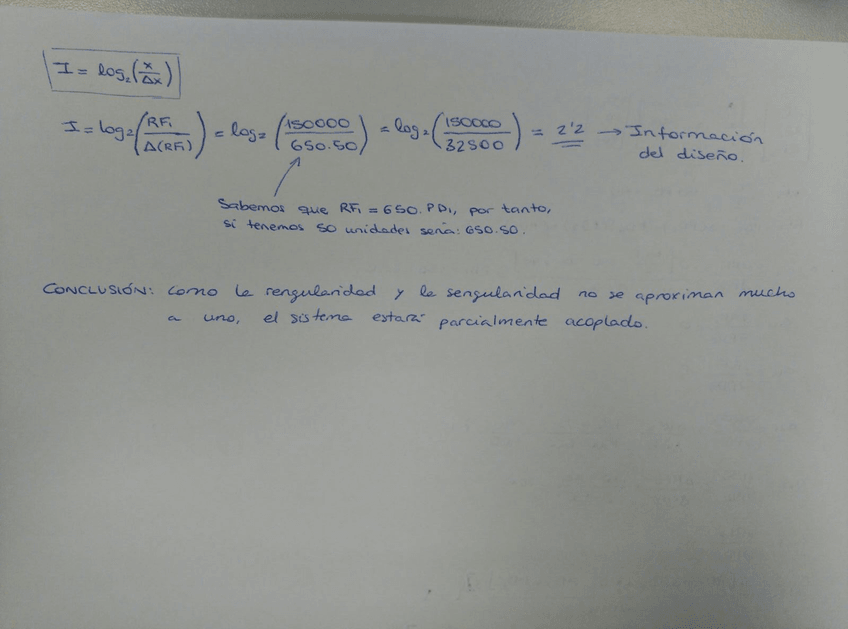 I = log₂(x/Δx)
I = log₂(RF₁/Δ(RF₁)) = log₂(150000/650·50) = log₂(150000/32500) = 2'2 → Información
del diseño.
Sabemos que RF₁ = 650·PD₁, por tanto,
si tenemos 50 unidades sería: 650·50.
CONCLUSIÓN: como la rengularidad y la sengularidad no se aproximan mucho
a uno, el sistema estará parcialmente acoplado.